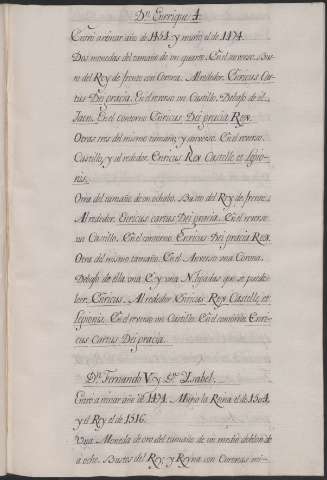 Dn. Enrique 4.
Entró a reinar año de 1454 y murió el de 1474.
Dos monedas del tamaño de un quarto. En el anverso. Bus-
to del Rey de frente con Corona. Al rededor. Enricus Car-
tus Dei gracia. En el reverso un Castillo. Debajo de el.
Jaen. En el contorno Enricus Dei gracia Rex.
Otras tres del mismo tamaño, y anverso. En el reverso.
Castillo, y al rededor. Enricus Rex Castelle et Legio-
nis.
Otra del tamaño de un ochabo. Busto del Rey de frente.
Al rededor. Enricus cartus Dei gracia. En el reverso
un Castillo. En el contorno Enricus Dei gracia Rex.
Otra del mismo tamaño. En el Anverso una Corona.
Debajo de ella una E. y una N. ligadas que se puede
leer. Enricus. Al rededor Enricus Rex Castelle et
Legionis. En el reverso un Castillo. En el contorno. Enri-
cus Cartus Dei gracia.
Dn. Fernando V. y Da. Isabel.
Entró a reinar año de 1474. Murio la Reina el de 1504
y el Rey el de 1516.
Una Moneda de oro del tamaño de un medio doblon de
a ocho. Bustos del Rey, y Reyna con Coronas mi-